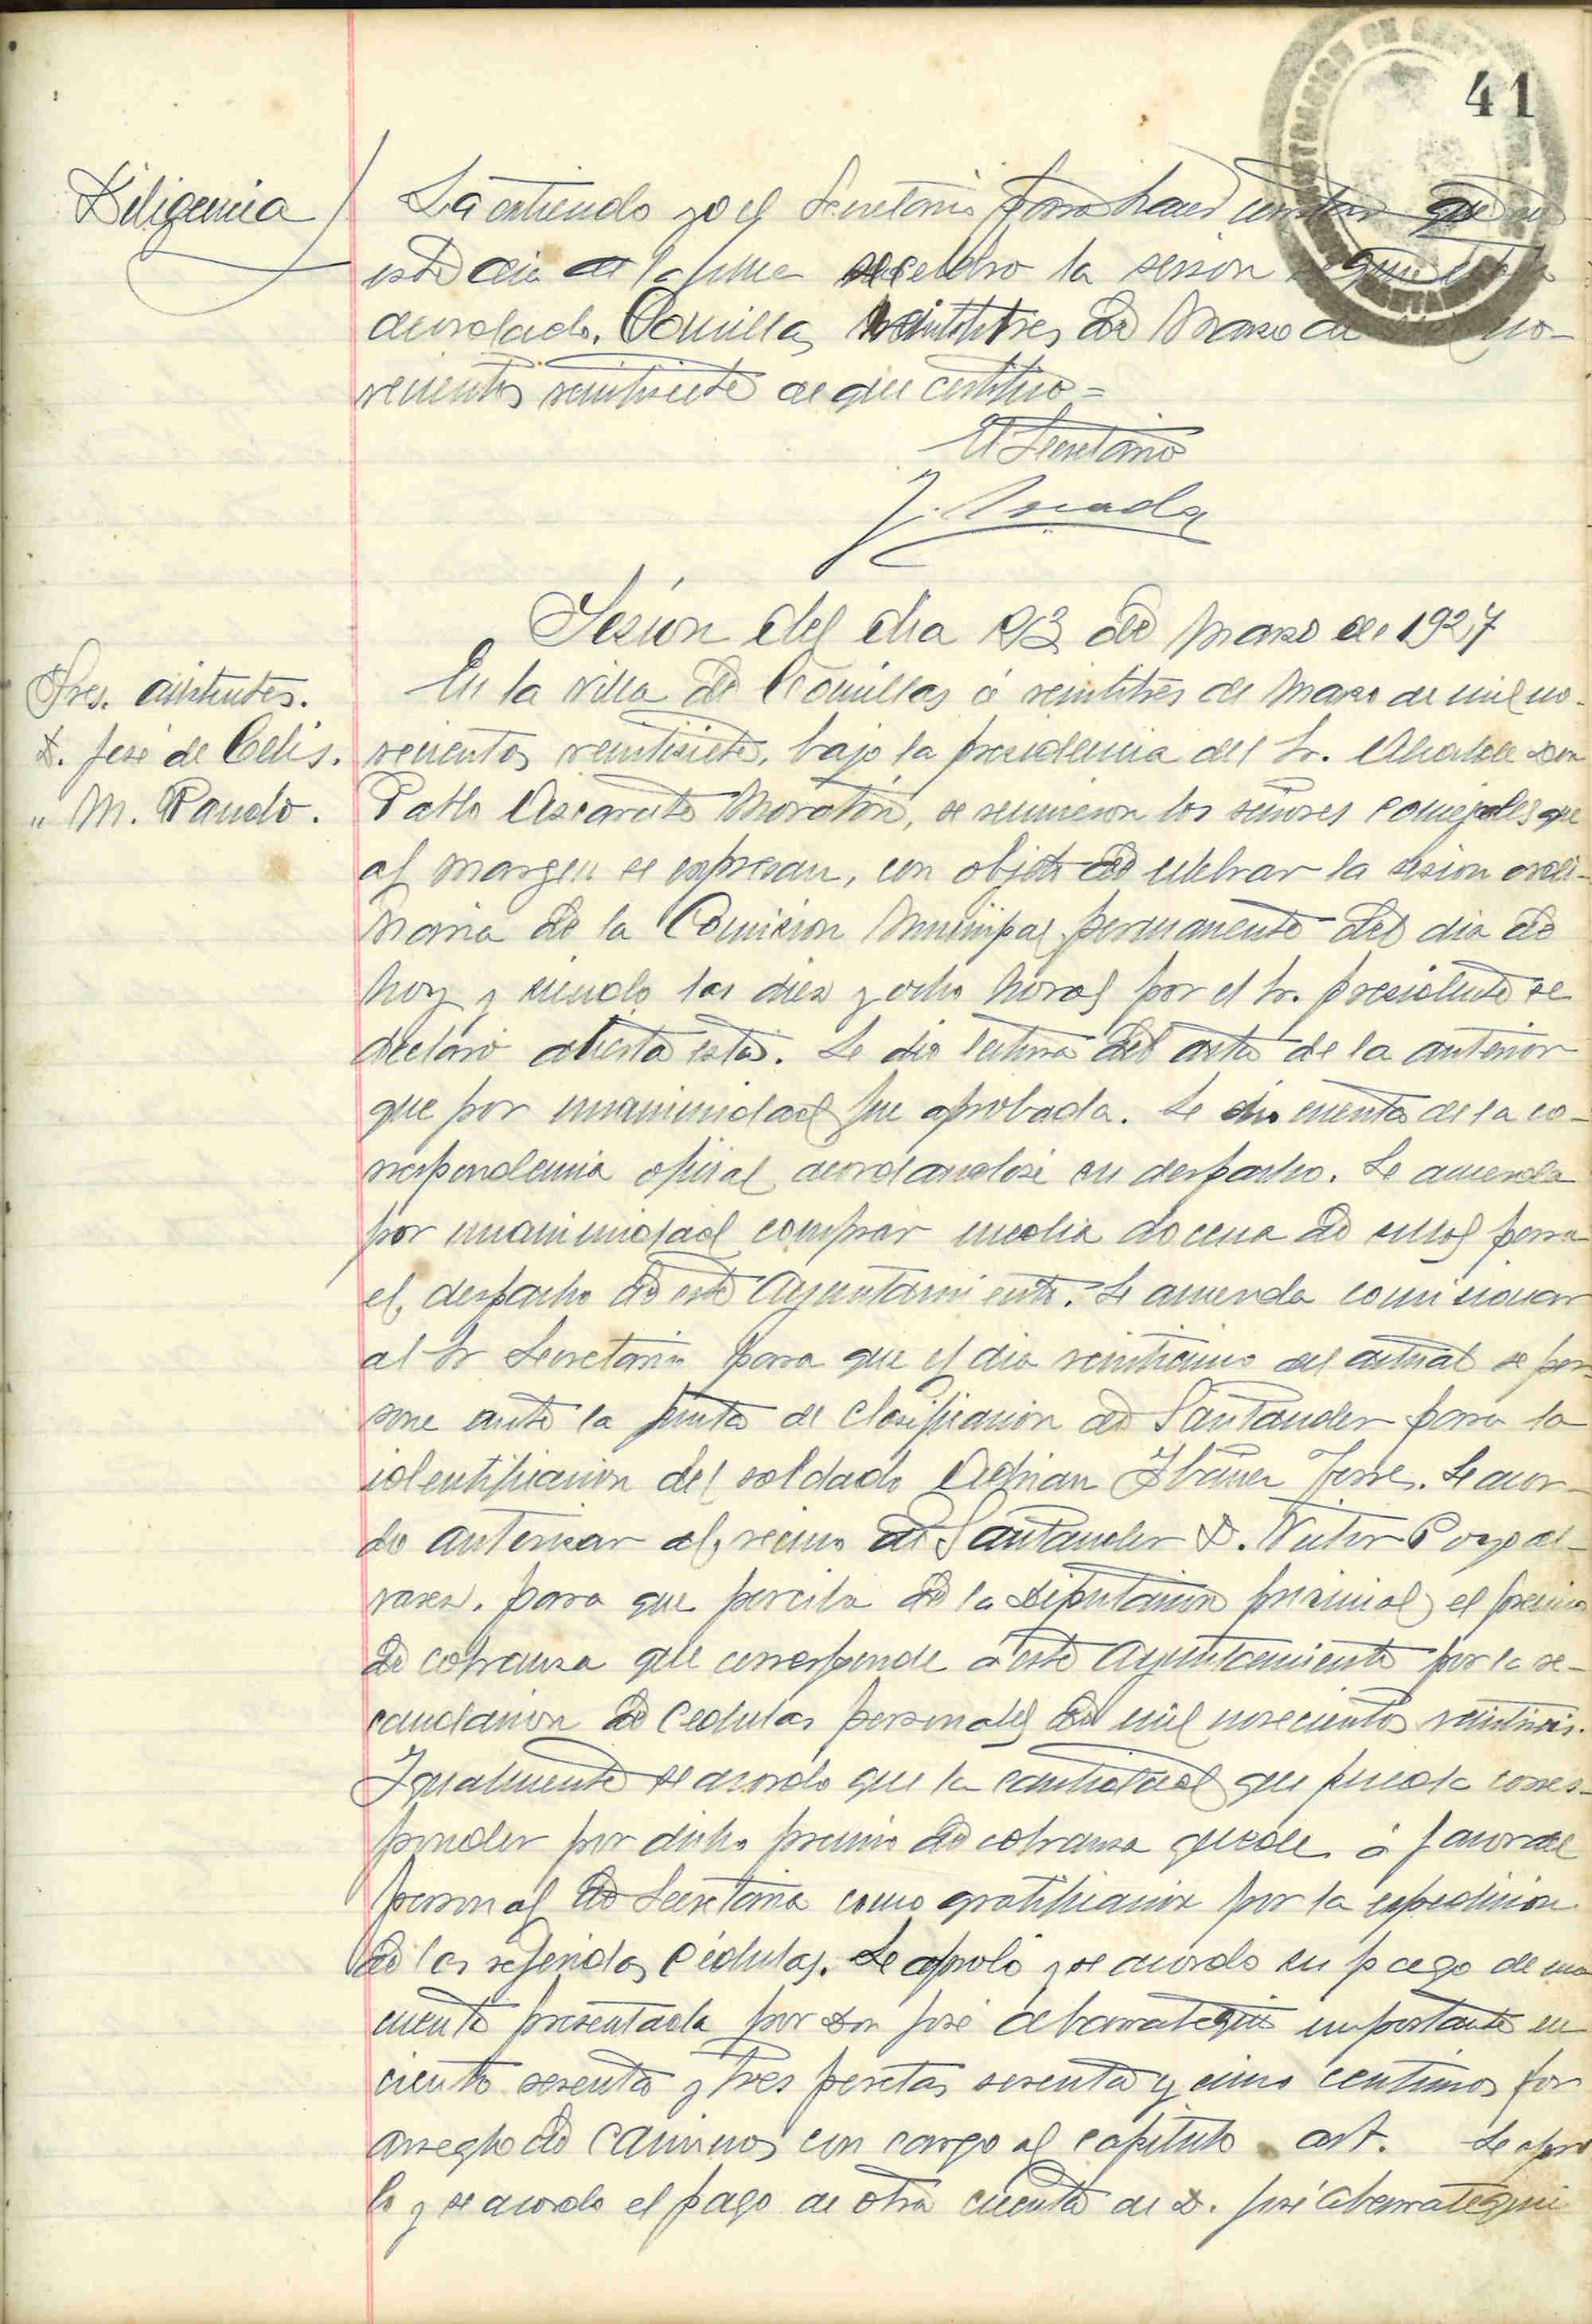 41
Diligencia
La extiendo yo el Secretario para hacer constar que en
este dia de la fecha se celebro la sesion que esta
acordada. Comillas veintitres de Marzo de no-
vecientos veintisiete de que certifico =
El Secretario
Sesión del dia 23 de Marzo de 1927
Sres. asistentes.
D. José de Celis.
" M. Pando.
En la villa de Comillas á veintitres de Marzo de mil no-
vecientos veintisiete, bajo la presidencia del Sr. Alcalde Don
Pablo Ascarate Moratón, se reunieron los señores concejales que
al margen se expresan, con objeto de celebrar la sesion ordi-
naria de la Comision Municipal permanente del dia de
hoy y siendo las diez y ocho horas por el Sr. presidente se
declaró abierta esta. Se dio lectura del acta de la anterior
que por unanimidad fue aprobada. Se dio cuenta de la co-
rrespondencia oficial acordandose su despacho. Se acuerda
por unanimidad comprar media docena de para
el despacho de este Ayuntamiento. Se acuerda comisionar
al Sr Secretario para que el dia veinticinco del actual se per-
sone ante la junta de Clasificacion de Santander para la
identificacion del soldado Adrian Ibañez Torre. Se acor-
do autorizar al vecino de Santander D. Victor Pozo al-
varez. para que perciba de la Diputacion provincial el premio
de cobranza que corresponde á este Ayuntamiento por la re-
caudacion de Cedulas personales de mil novecientos veintiseis.
Igualmente se acordo que la cantidad que pueda corres-
ponder por dicho premio de cobranza quede á favor del
personal de Secretaria como gratificacion por la expedicion
de las referidas Cédulas. Se aprobó y se acordo su pago de una
cuenta presentada por Don José abarrategui importante en
ciento sesenta y tres pesetas sesenta y cinco centimos por
arreglo de caminos con cargo al capitulo art. Se apro
bo y se acordo el pago de otra cuenta de D. José Abarrategui